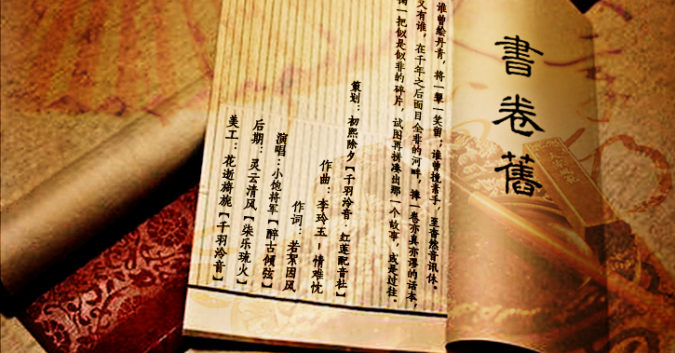 書卷舊
谁曾绘丹青，将一颦一笑留；谁曾挽素手，至杳然音讯休。
又有谁，在千年之后面目全非的河畔，捧一卷亦真亦谬的话本，
一把似是似非的碎片，试图再拼凑出那一个故事，或是过往。
策划：初熙除夕【千羽泠音·红莲配音社】
作曲：李玲玉-情难忱
作词：若絮因风
演唱：小炮将军【醉古倾弦】
后期：灵云清风【柒乐琉火】
美工：花逝旖旎【千羽泠音】